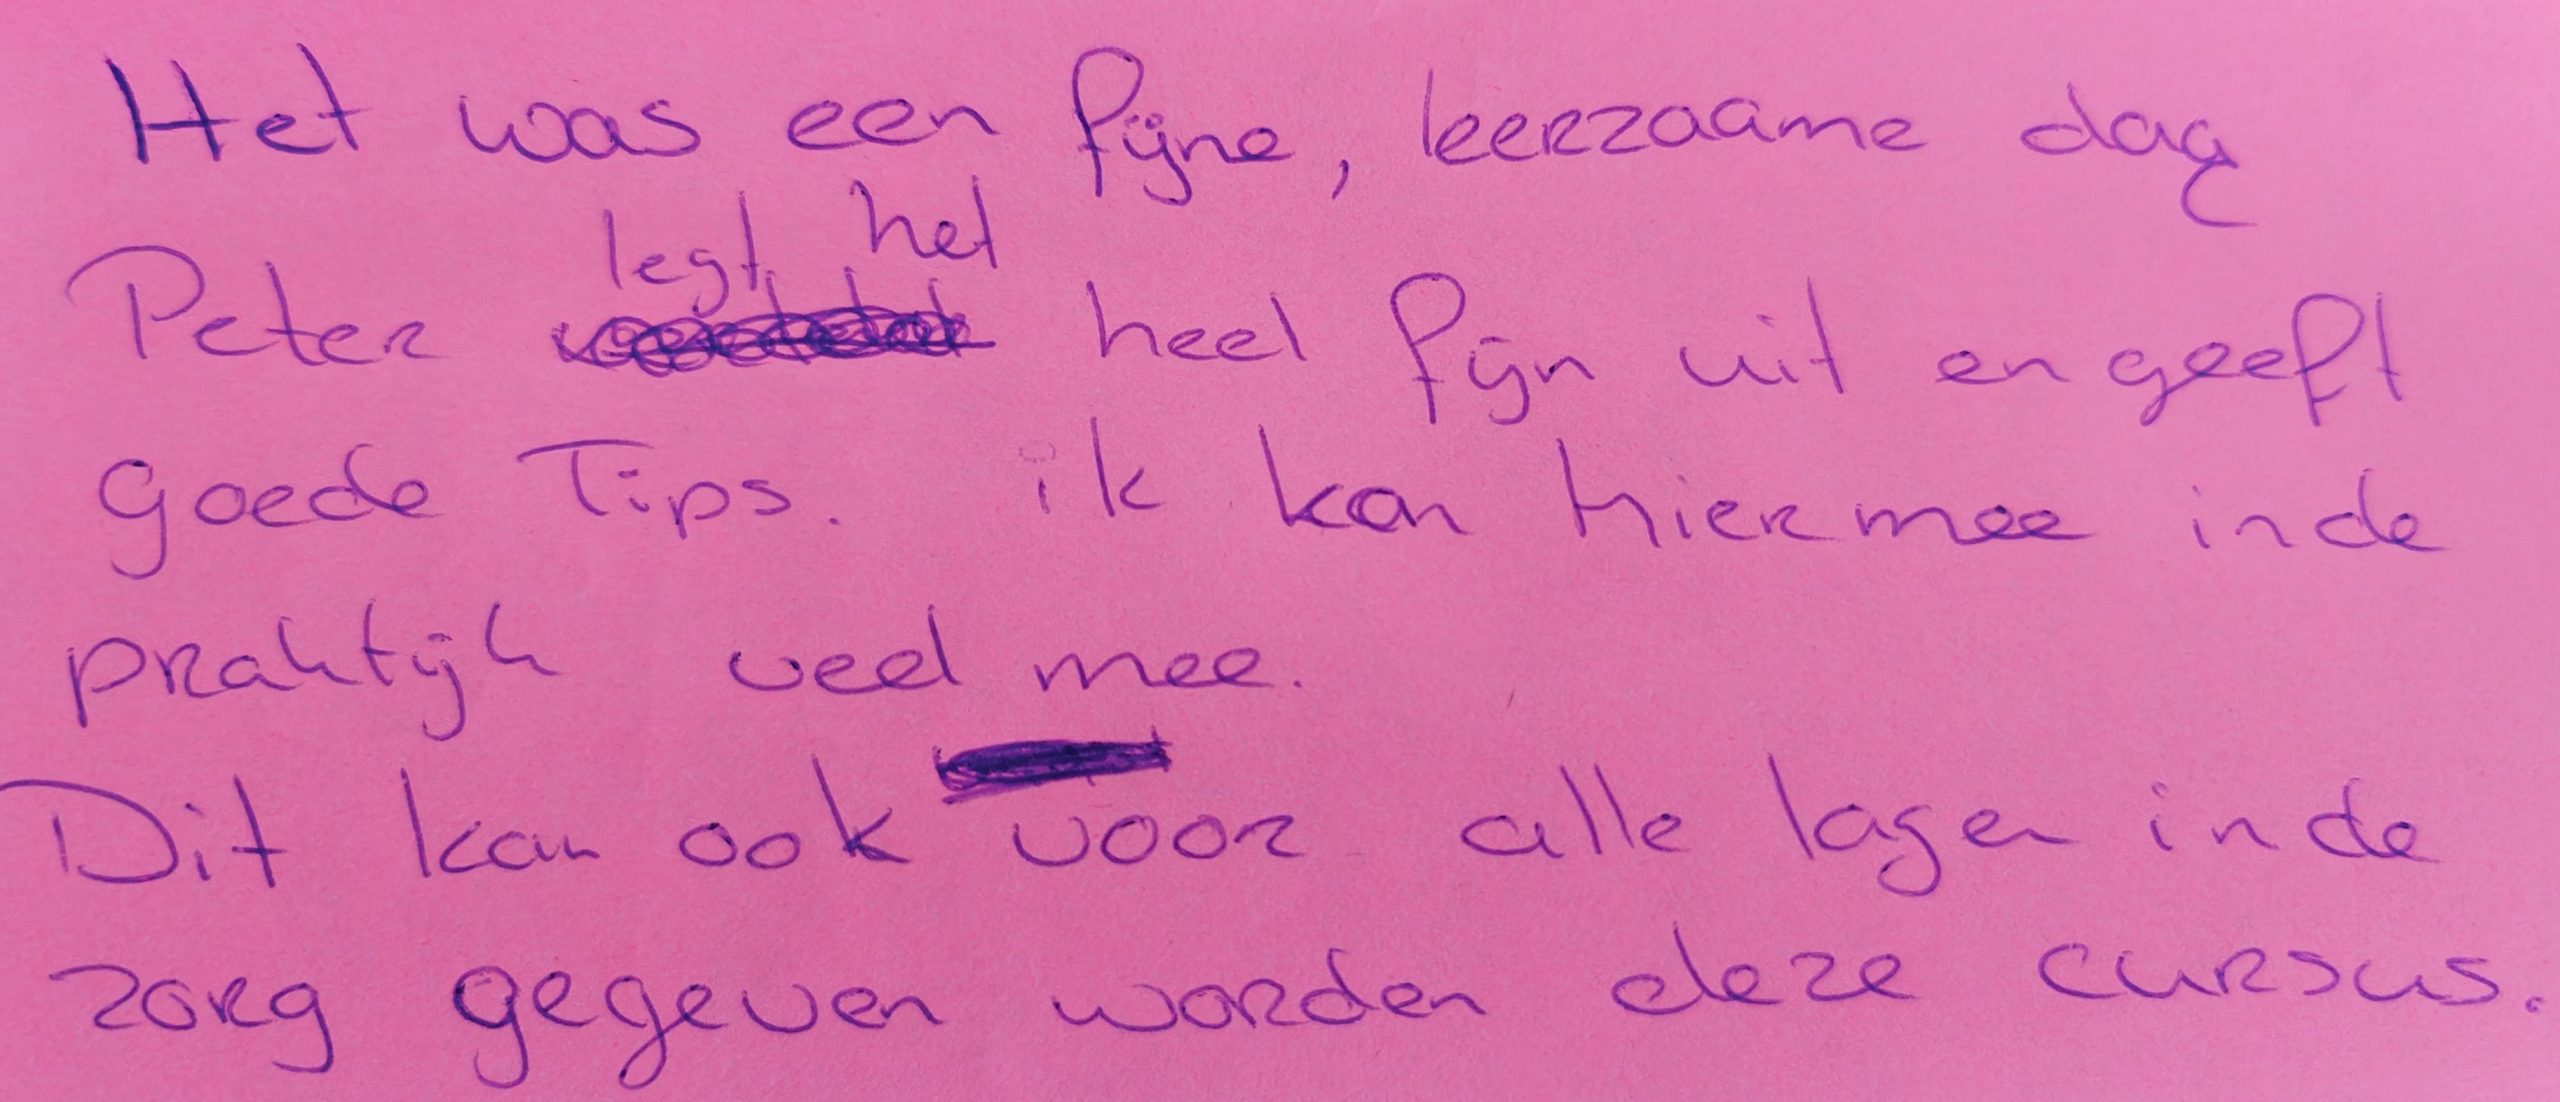 Het was een fijne, leerzaame dag
Peter legt het heel fijn uit en geeft
goede Tips. ik kan hiermee in de
praktijk veel mee.
Dit kan ook voor alle lagen in de
zorg gegeven worden deze cursus.